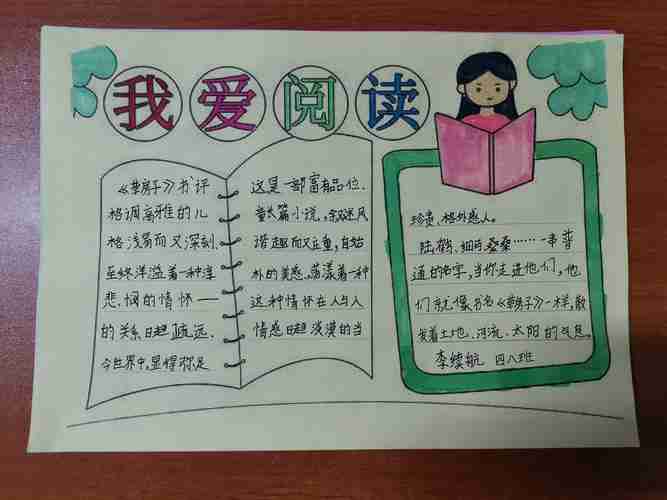 我爱阅读
《草房子》书评
这是一部富有品位、
格调高雅的儿
童长篇小说,叙述风
格浅易而又深刻、
谐趣而又庄重,自始
至终洋溢着一种淳
外的美感,荡漾着一种
悲悯的情怀——
这种情怀在人与人
的关系日趋疏远、
情感日趋淡漠的当
今世界中,显得弥足
珍贵、格外感人。
陆鹤、细马、桑桑……一串普
通的名字,当你走进他们,他
们就像书名《草房子》一样,散
发着土地、河流、太阳的气息。
李续航 四八班